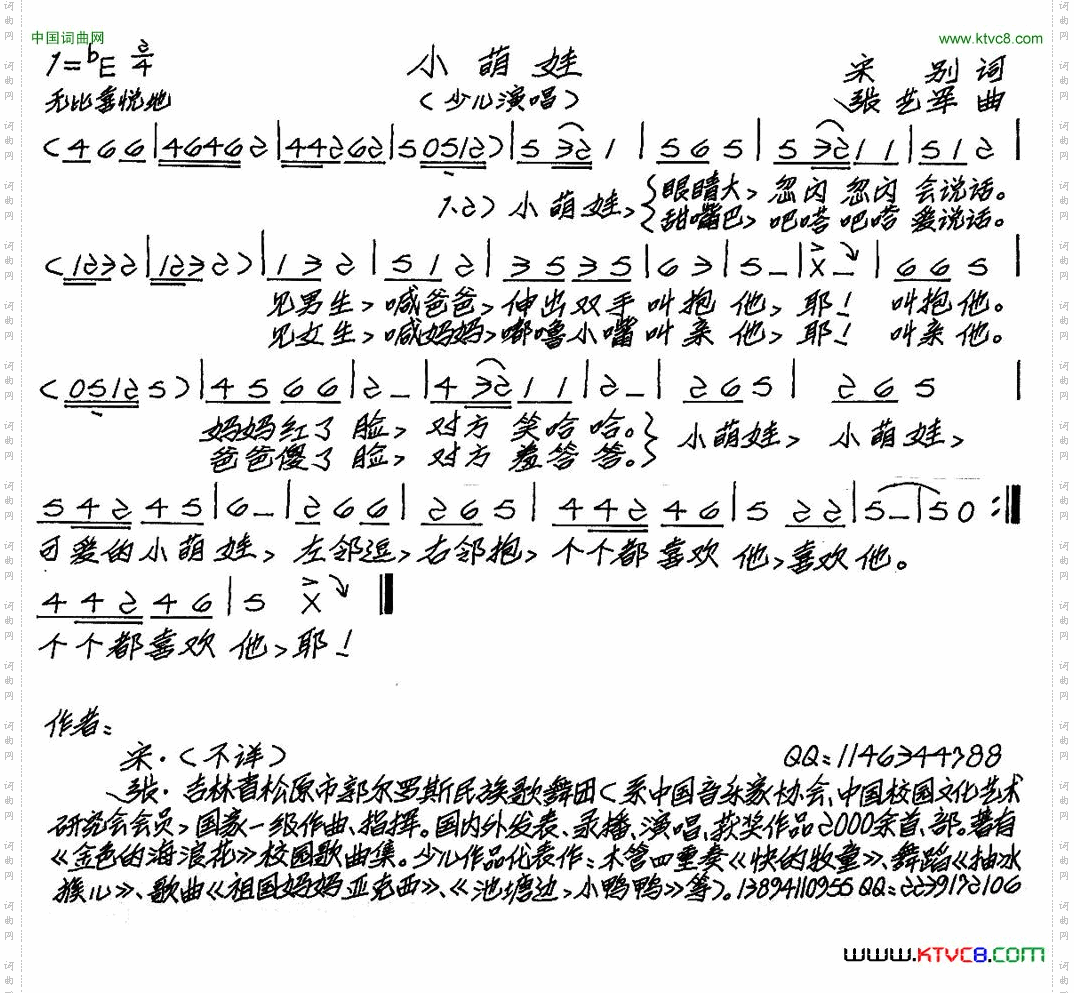 中国词曲网
www.ktvc8.com
1=bE 2/4
小萌娃
宋 别 词
无比喜悦地
(少儿演唱)
张艺军 曲
(4 6 6|4 6 4 6 2|4 4 2 6 2|5 0 5 1 2)|5 3 2 1|5 6 5|5 3 2 1 1|5 1 2|
1.2) 小萌娃,{眼睛大, 忽闪 忽闪 会说话。
{甜嘴巴, 吧嗒 吧嗒 爱说话。
(1 2 3 2|1 2 3 2)|1 3 2|5 1 2|3 5 3 5|6 3|5 –|X –|6 6 5|
见男生, 喊爸爸, 伸出双手叫抱他, 耶! 叫抱他。
见女生, 喊妈妈, 嘟噜小嘴叫亲他, 耶! 叫亲他。
(0 5 1 2 5)|4 5 6 6|2 –|4 3 2 1 1|2 –|2 6 5|2 6 5|
妈妈红了脸, 对方笑哈哈。} 小萌娃, 小萌娃,
爸爸傻了脸, 对方羞答答。}
5 4 2 4 5|6 –|2 6 6|2 6 5|4 4 2 4 6|5 2 2|5 –|5 0 :‖
可爱的小萌娃, 左邻逗, 右邻抱, 个个都喜欢他, 喜欢他。
4 4 2 4 6|5 X ‖
个个都喜欢他, 耶!
作者:
宋·(不详) QQ:1146344788
张·吉林省松原市郭尔罗斯民族歌舞团(系中国音乐家协会、中国校园文化艺术
研究会会员, 国家一级作曲、指挥。国内外发表、录播、演唱、获奖作品2000余首、部。著有
《金色的海浪花》校园歌曲集。少儿作品代表作:木管四重奏《快的牧童》、舞蹈《抽冰
猴儿》、歌曲《祖国妈妈亚克西》、《池塘边,小鸭鸭》等)。13894110955 QQ:2239172106
www.KTVC8.com